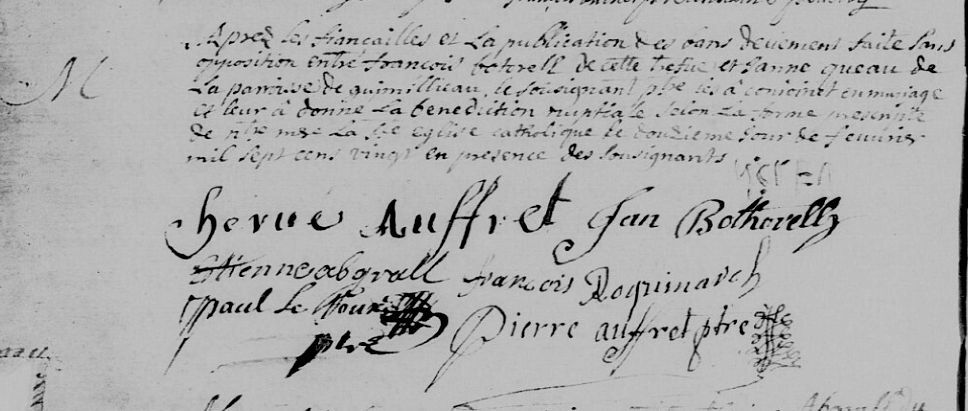 M
Aprez les fiancailles et La publication des bans deuement faite sans
opposition entre françois botorell de cette trefue et janne queau de
La paroisse de guimillieau, le sousignant pbre les a conioinct en mariage
et leur à donné La benediction nuptiale selon La forme prescritte
de nre mere La ste eglise catholique le douzieme Jour de feuurier
mil sept cens vingt en presence des sousignants
herue Auffret Jan Bothorell
Ettienne abgrall françois Roquinarch
paul Le
ptre Pierre auffret ptre